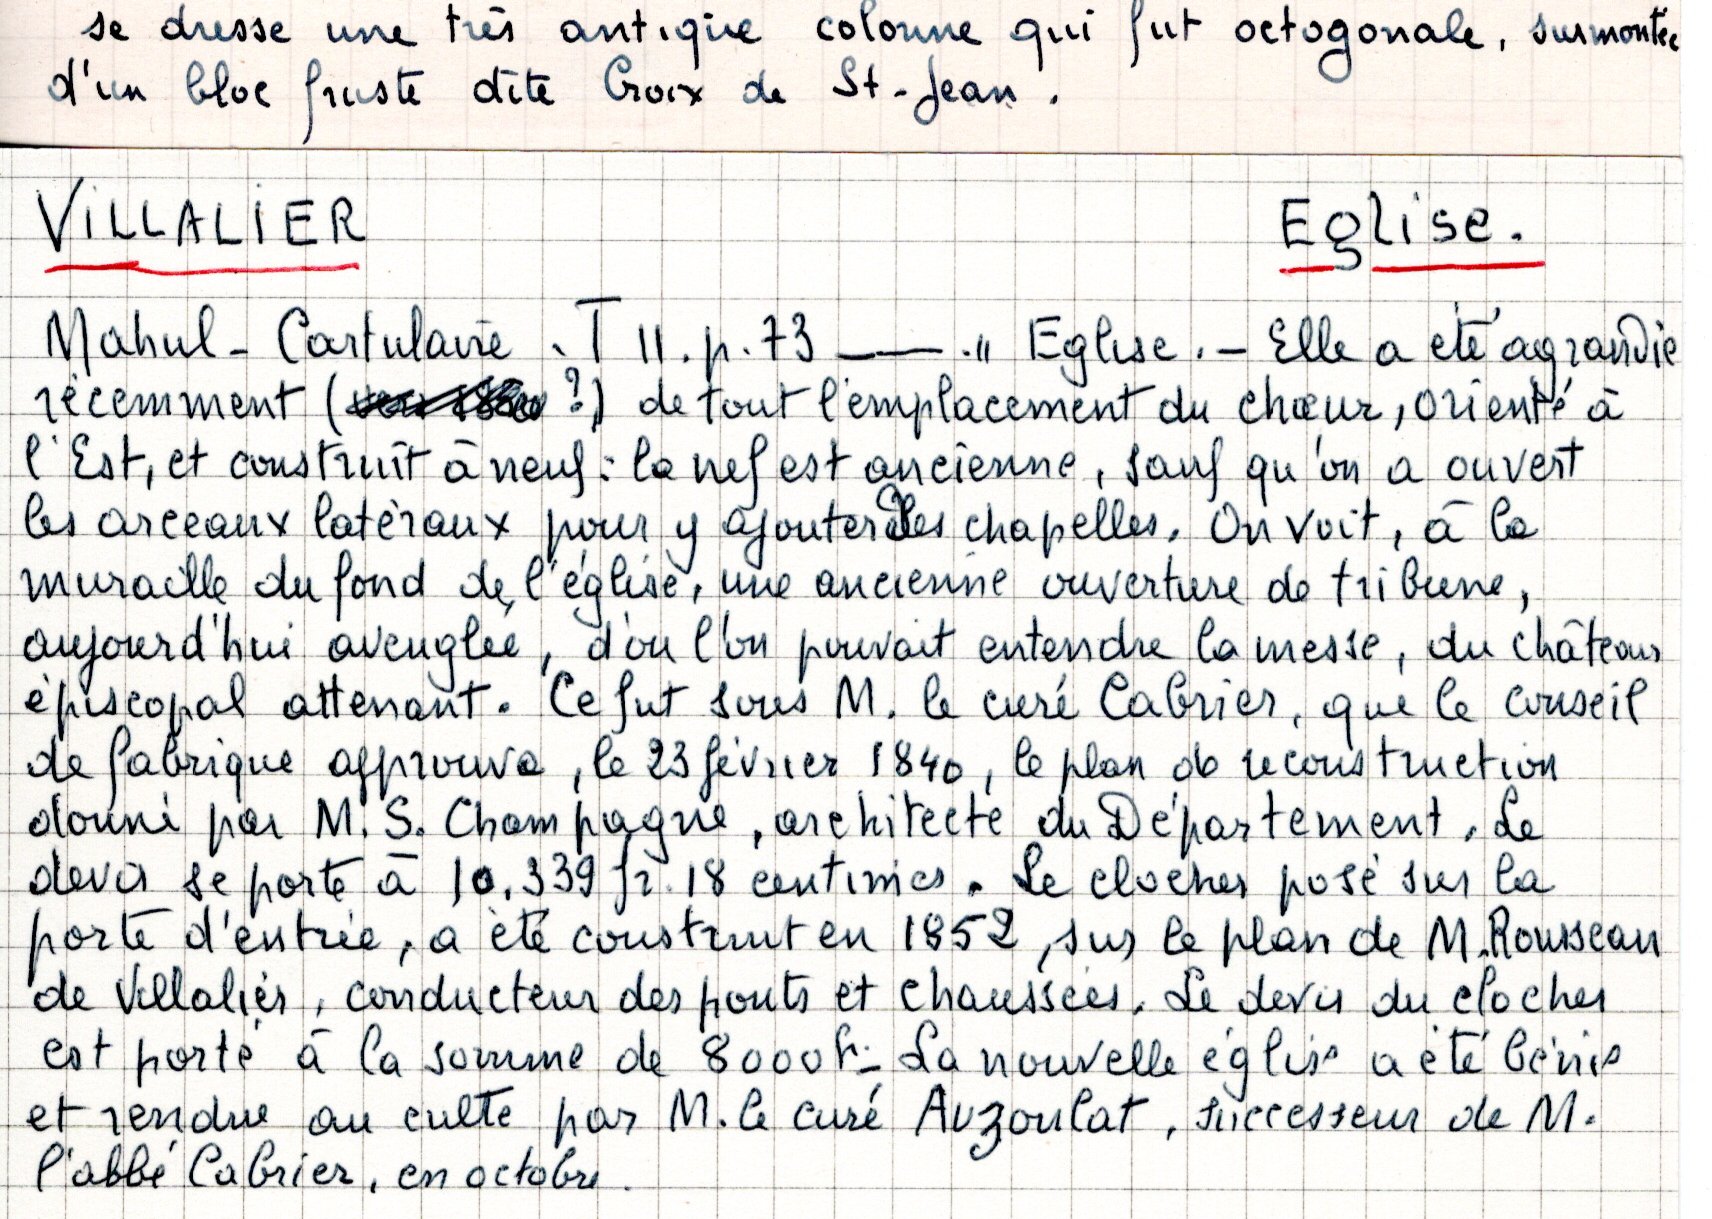 se dresse une très antique colonne qui fut octogonale, surmontée
d'un bloc fruste dite Croix de St-Jean.
VILLALIER Eglise.
Mahul - Cartulaire. T II. p. 73 —— " Eglise. - Elle a été agrandie
récemment ( ?) de tout l'emplacement du chœur, orienté à
l'Est, et construit à neuf : la nef est ancienne, sauf qu'on a ouvert
les arceaux latéraux pour y ajouter des chapelles. On voit, à la
muraille du fond de l'église, une ancienne ouverture de tribune,
aujourd'hui aveuglée, d'où l'on pouvait entendre la messe, du château
épiscopal attenant. Ce fut sous M. le curé Cabrier, que le conseil
de fabrique approuva, le 23 février 1840, le plan de reconstruction
donné par M. S. Champagne, architecte du Département. Le
devis se porte à 10.339 fr. 18 centimes. Le clocher posé sur la
porte d'entrée, a été construit en 1852, sur le plan de M. Rousseau
de Villalier, conducteur des ponts et chaussées. Le devis du clocher
est porté à la somme de 8000 fr. - La nouvelle église a été bénie
et rendue au culte par M. le curé Auzoulat, successeur de M.
l'abbé Cabrier, en octobre.